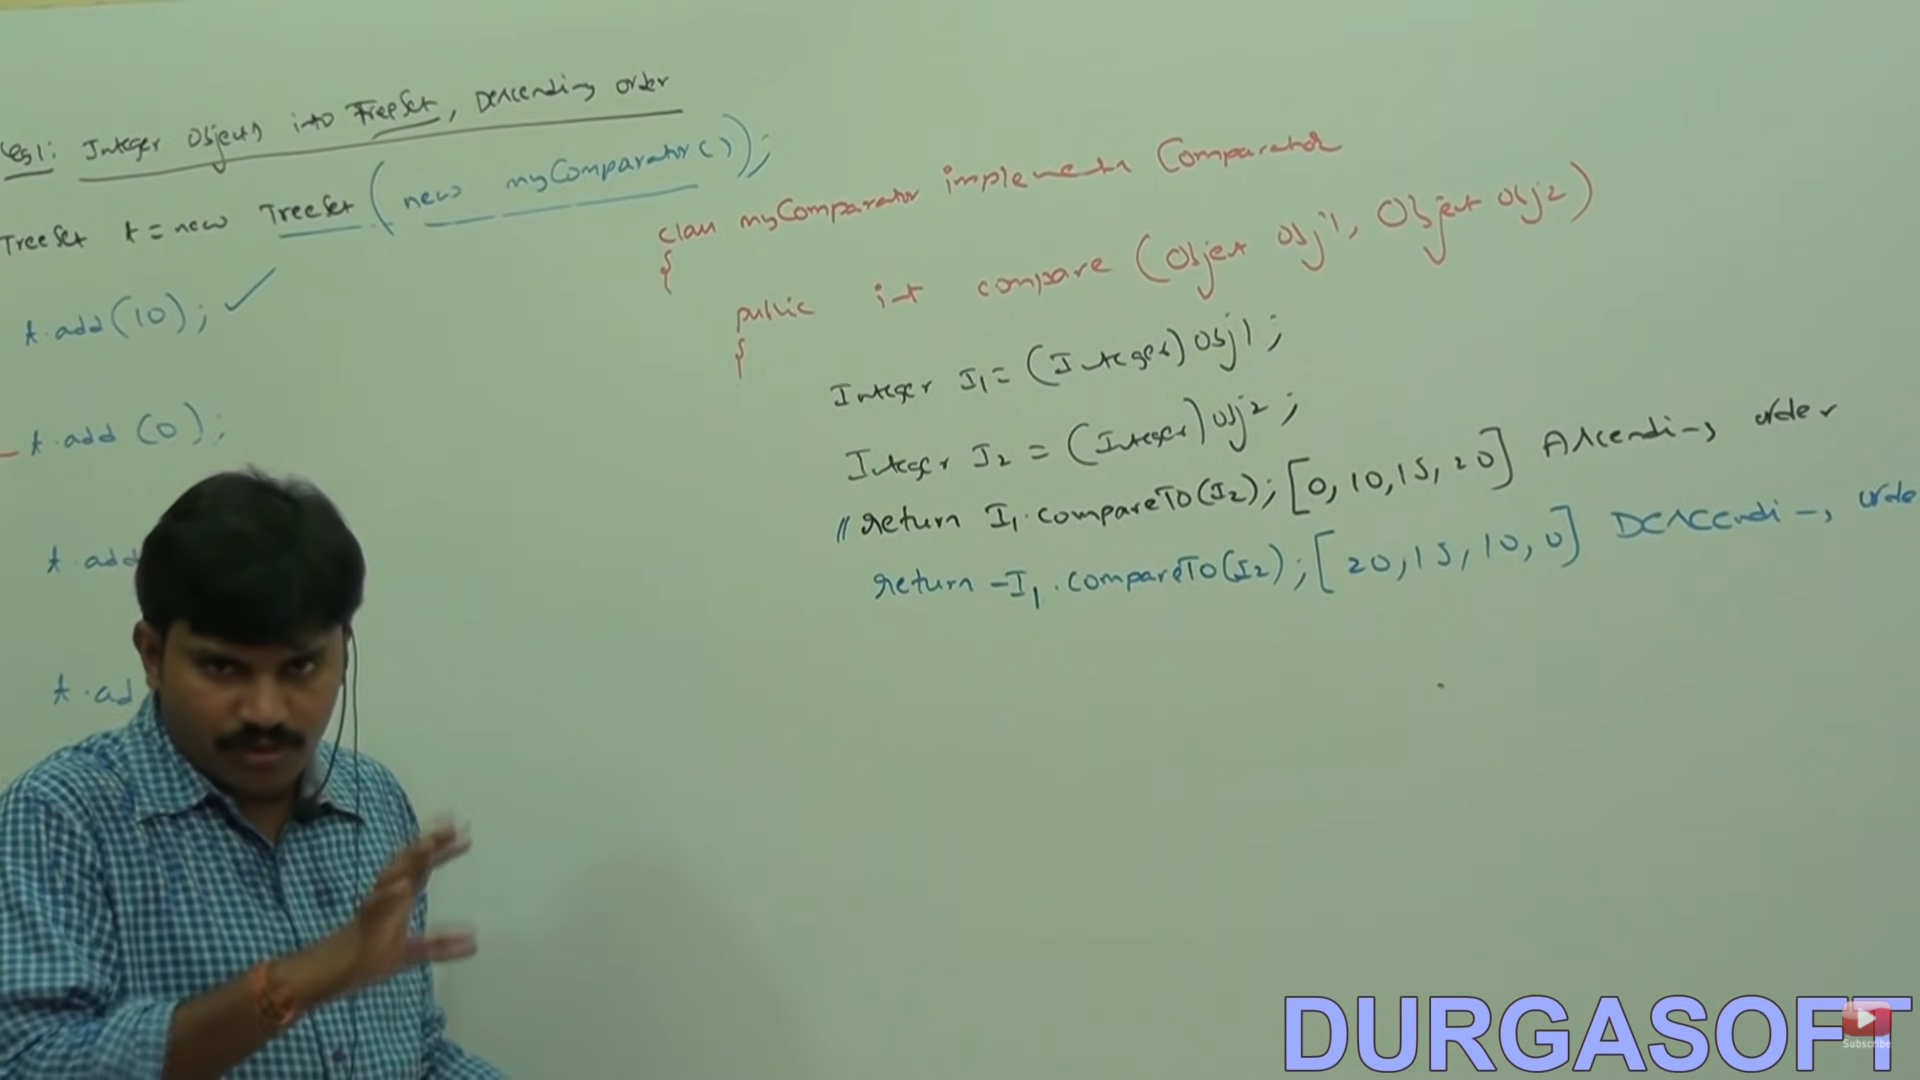 eg1: Integer Objects into TreeSet, Descending order
TreeSet t = new TreeSet (new myComparator());
t.add(10); ✓
t.add(0);
t.add
t.ad
class myComparator implements Comparator
{
public int compare (Object obj1, Object obj2)
{
Integer I1 = (Integer) obj1;
Integer I2 = (Integer) obj2;
// return I1.compareTo(I2); [0, 10, 15, 20] Ascending order
return -I1.compareTo(I2); [20, 15, 10, 0] Descending orde
DURGASOFT
Subscribe